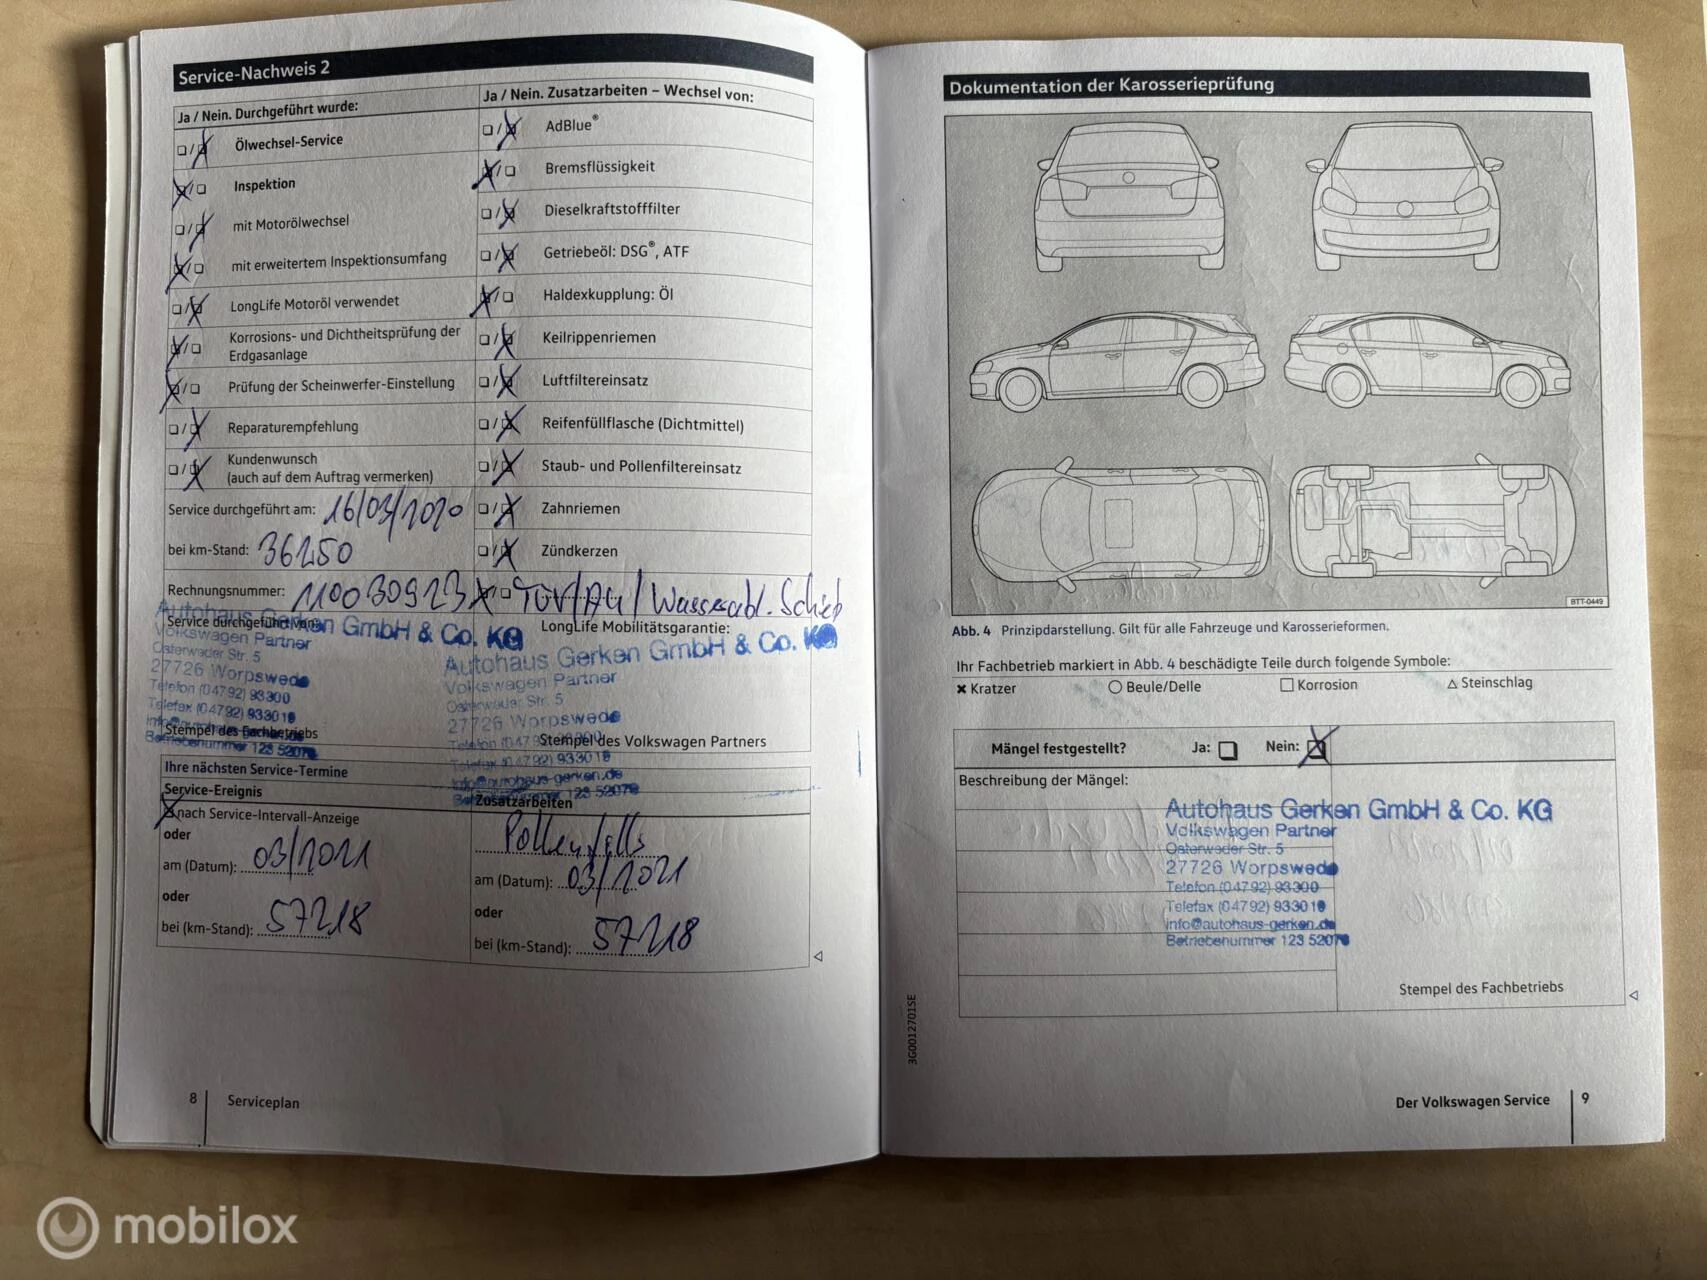 Service-Nachweis 2
Ja / Nein. Durchgeführt wurde:
Ölwechsel-Service
Inspektion
mit Motorölwechsel
mit erweitertem Inspektionsumfang
LongLife Motoröl verwendet
Korrosions- und Dichtheitsprüfung der
Erdgasanlage
Prüfung der Scheinwerfer-Einstellung
Reparaturempfehlung
Kundenwunsch
(auch auf dem Auftrag vermerken)
Service durchgeführt am: 16/03/2020
bei km-Stand: 36250
Rechnungsnummer: 110030923
Service durchgeführt von:
Autohaus Gerken GmbH & Co. KG
Volkswagen Partner
Osterweder Str. 5
27726 Worpswede
Telefon (04792) 93300
Telefax (04792) 933019
info@autohaus-gerken.de
Betriebenummer 123 52078
Stempel des Fachbetriebs
Ja / Nein. Zusatzarbeiten – Wechsel von:
AdBlue®
Bremsflüssigkeit
Dieselkraftstofffilter
Getriebeöl: DSG®, ATF
Haldexkupplung: Öl
Keilrippenriemen
Luftfiltereinsatz
Reifenfüllflasche (Dichtmittel)
Staub- und Pollenfiltereinsatz
Zahnriemen
Zündkerzen
TÜV/AU/Wasserabl. Schieb
LongLife Mobilitätsgarantie:
Autohaus Gerken GmbH & Co. KG
Volkswagen Partner
Osterweder Str. 5
27726 Worpswede
Telefon (04792) 93300
Telefax (04792) 933019
info@autohaus-gerken.de
Betriebenummer 123 52078
Stempel des Volkswagen Partners
Ihre nächsten Service-Termine
Service-Ereignis
nach Service-Intervall-Anzeige
oder
am (Datum): 03/2021
oder
bei (km-Stand): 57218
Zusatzarbeiten
am (Datum): 03/2021
oder
bei (km-Stand): 57218
8
Serviceplan
Dokumentation der Karosserieprüfung
BTT-0449
Abb. 4 Prinzipdarstellung. Gilt für alle Fahrzeuge und Karosserieformen.
Ihr Fachbetrieb markiert in Abb. 4 beschädigte Teile durch folgende Symbole:
Kratzer
Beule/Delle
Korrosion
Steinschlag
Mängel festgestellt? Ja: Nein:
Beschreibung der Mängel:
Autohaus Gerken GmbH & Co. KG
Volkswagen Partner
Osterweder Str. 5
27726 Worpswede
Telefon (04792) 93300
Telefax (04792) 933019
info@autohaus-gerken.de
Betriebenummer 123 52078
Stempel des Fachbetriebs
3G0012701SE
Der Volkswagen Service
9
mobilox